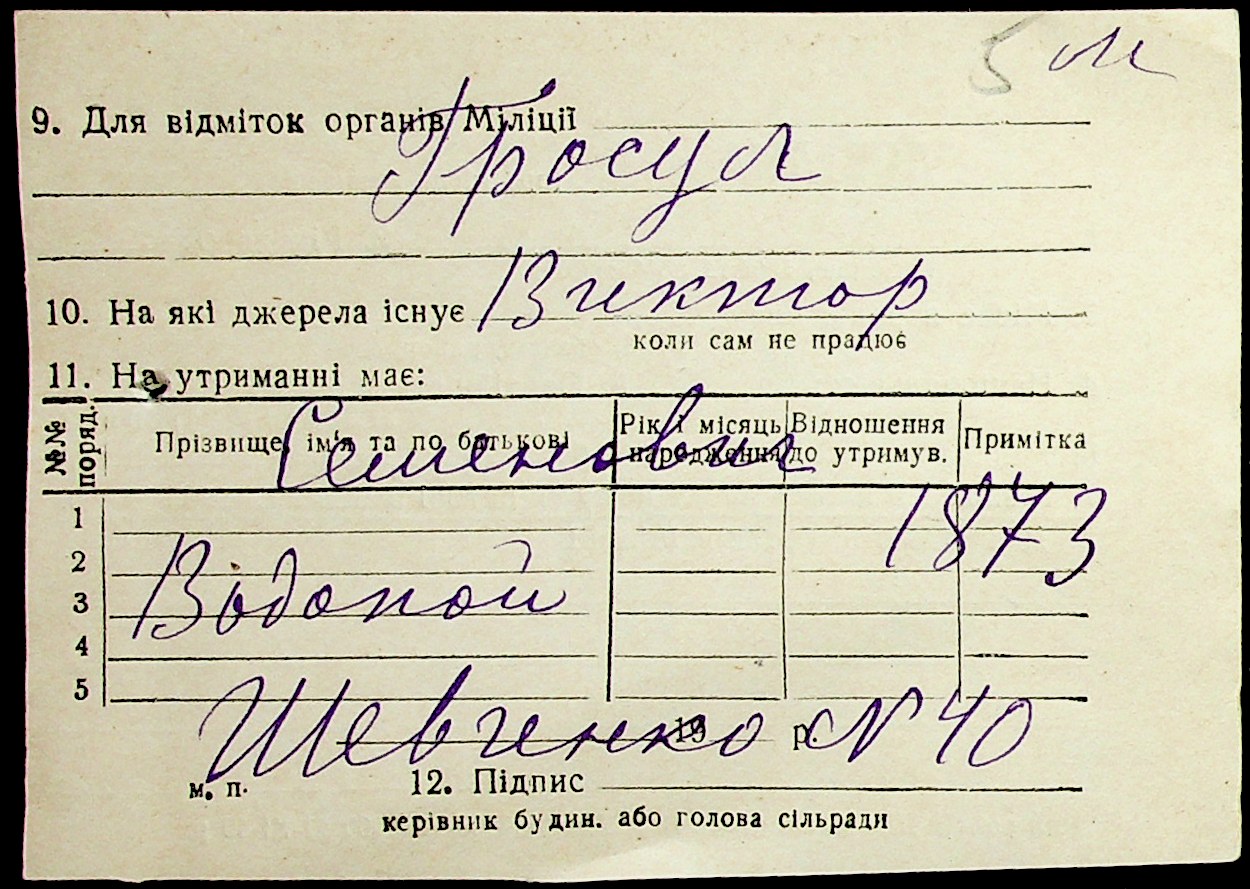 5 м
9. Для відміток органів Міліції
Гросул
10. На які джерела існує Виктор
коли сам не працює
11. На утриманні має:
№№ поряд. Прізвище, ім'я та по батькові Рік і місяць народження Відношення до утримув. Примітка
Семенович
1 1873
2
3 Водопой
4
5
Шевченко N 40
19 р.
м. п. 12. Підпис
керівник будин. або голова сільради